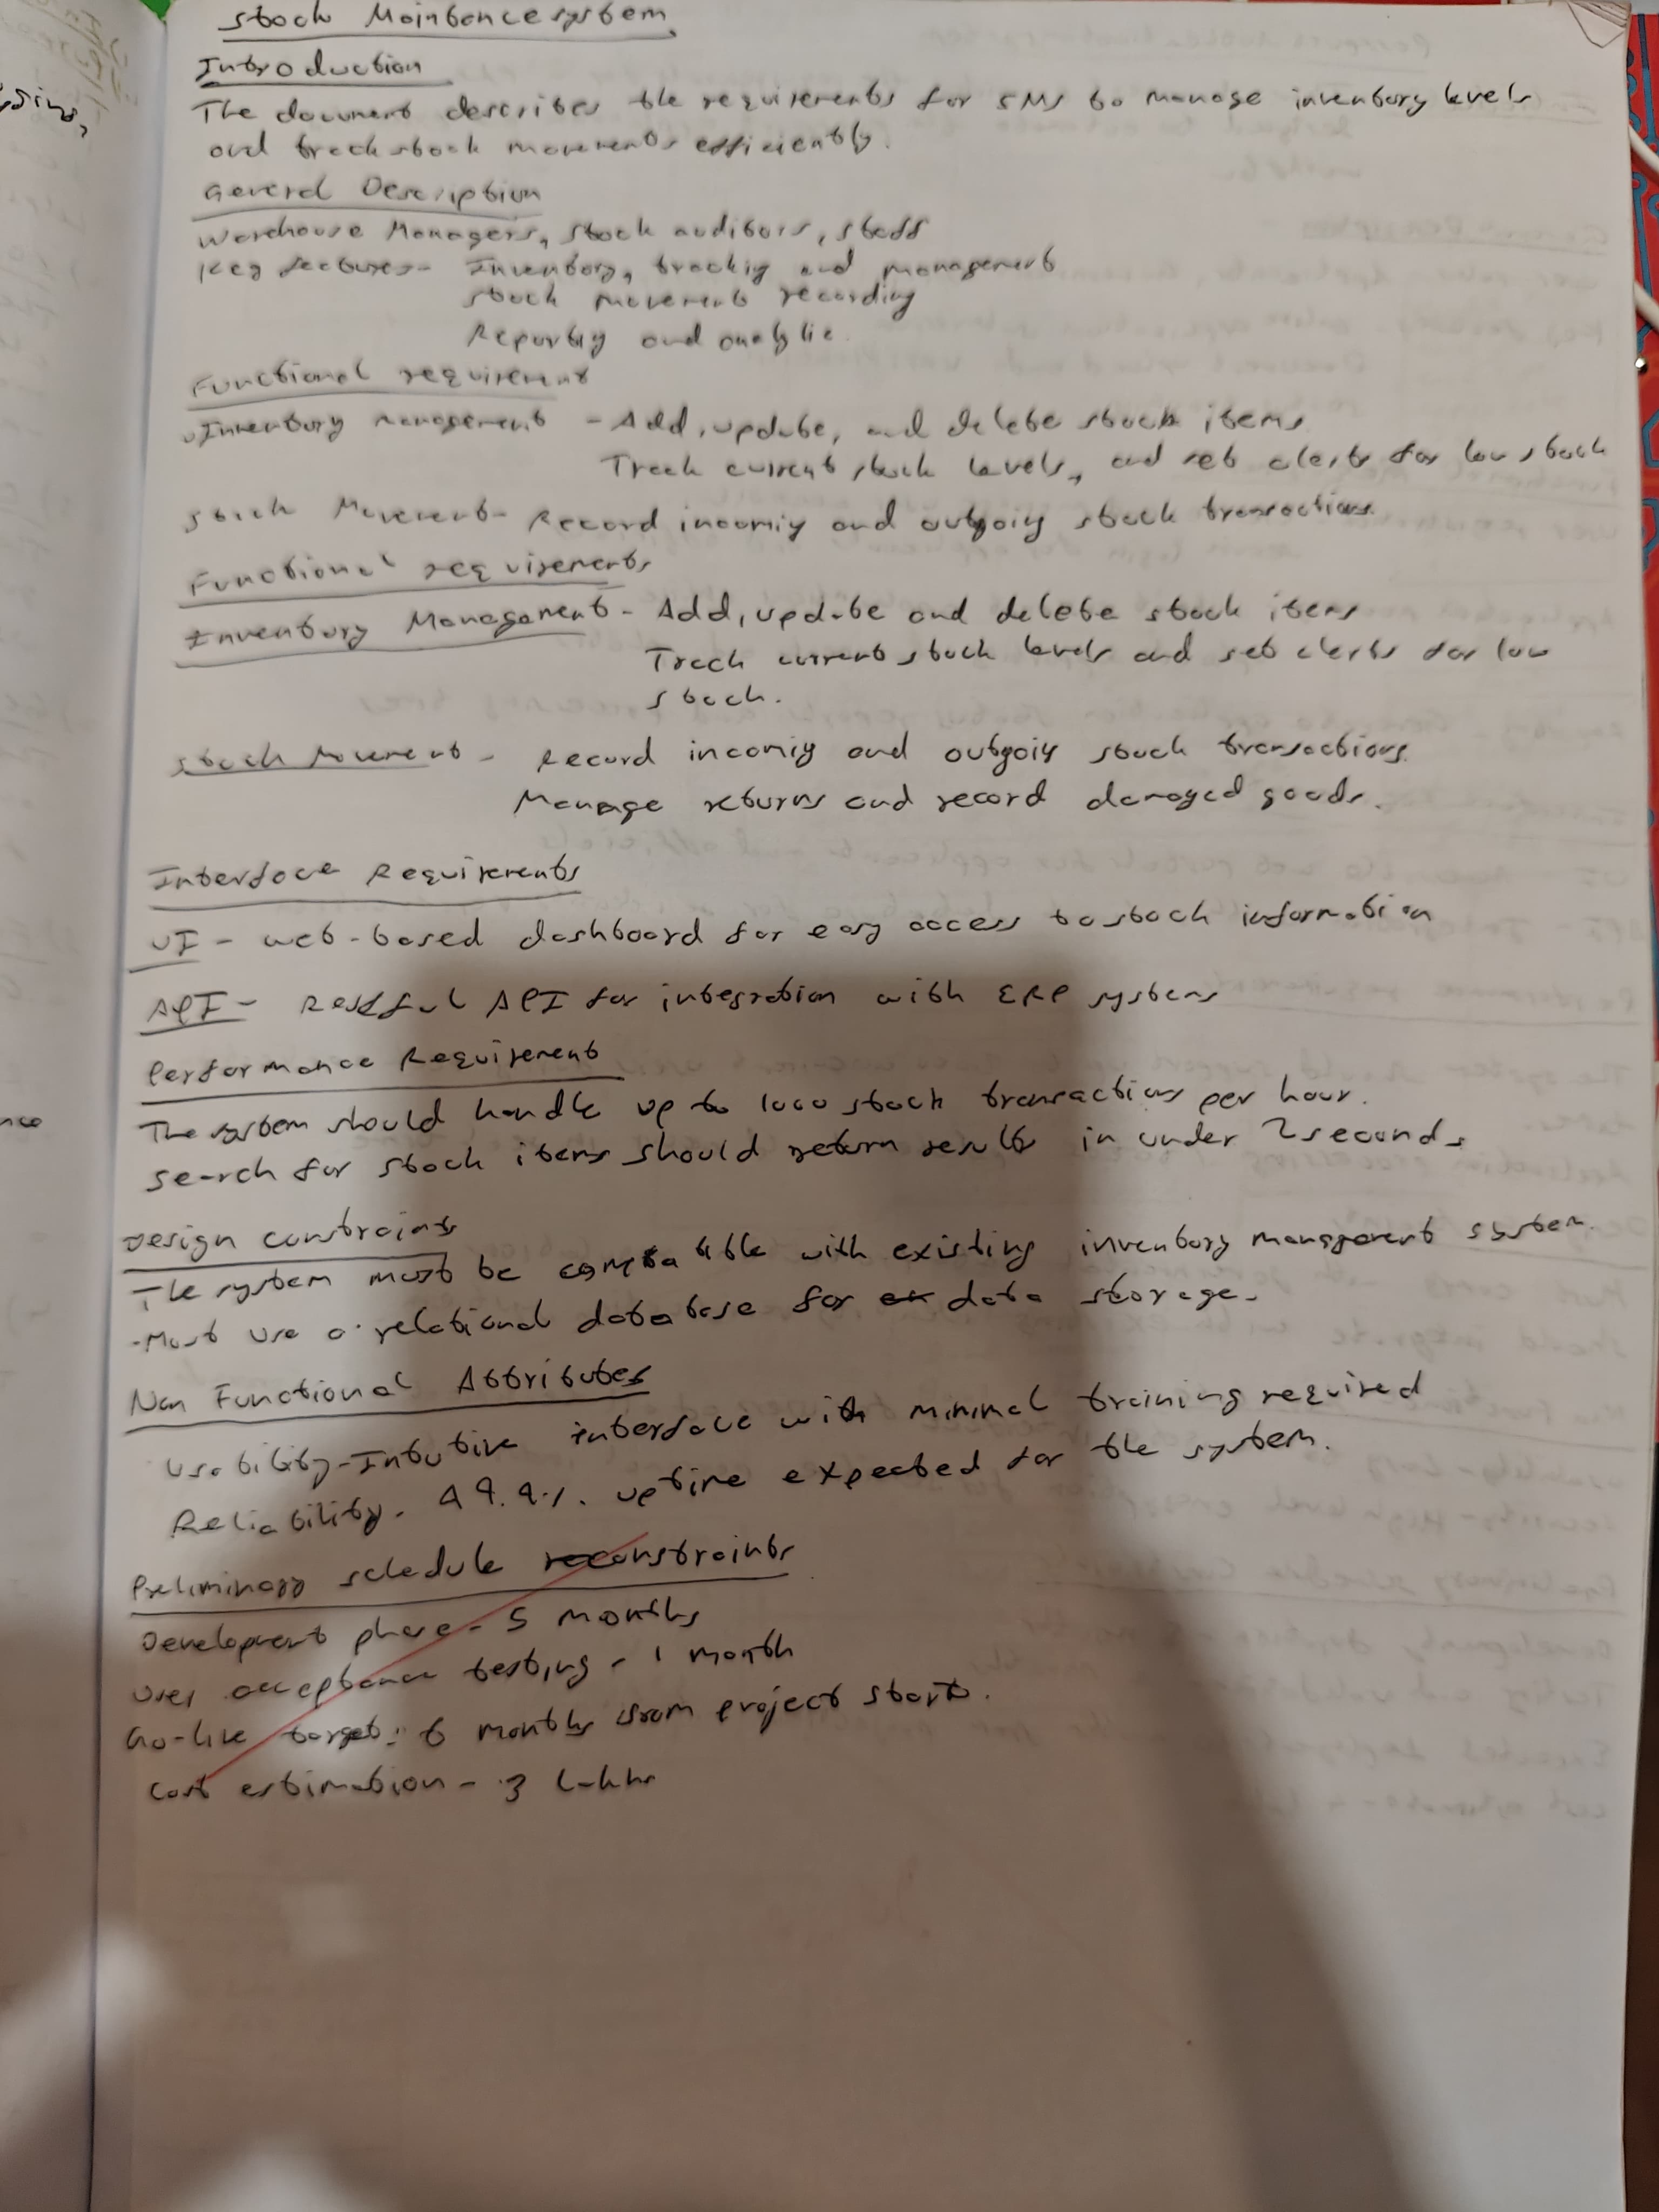 Stock Maintance system
Introduction
The document describes the requirements for SMS to manage inventory levels
and track stock movements efficiently.
General Description
Warehouse Managers, Stock auditors, staff
Key features- Inventory, trackig and management
Stock movement recording
Reportig and analytic.
Functional requirement
Inventory Management - Add, update, and delete stock items
Track current stock levels, and set alerts for low stock
Stock Movement- Record incomig and outgoig stock transactions
Functional requirements
Inventory Management - Add, update and delete stock items
Track current stock levels and set alerts for low
stock.
Stock Movement - Record incomig and outgoig stock transactions.
Manage returns and record damaged goods.
Interface Requirements
UI - web-based dashboard for easy access to stock information
API - Restful API for integration with ERP systems
Performance Requirement
The system should handle up to 1000 stock transactions per hour.
Search for stock items should return results in under 2 seconds
Design constraints
The system must be compatable with existing inventory management system.
-Must use a relational database for data storage.
Non Functional Attributes
Usability-Intutive interface with minimal training required
Reliability. 99.9%. uptime expected for the system.
Preliminary schedule constraints
Development phase - 5 months
User acceptance testing - 1 month
Go-live target: 6 months from project start.
Cost estimation - 3 Lakhs